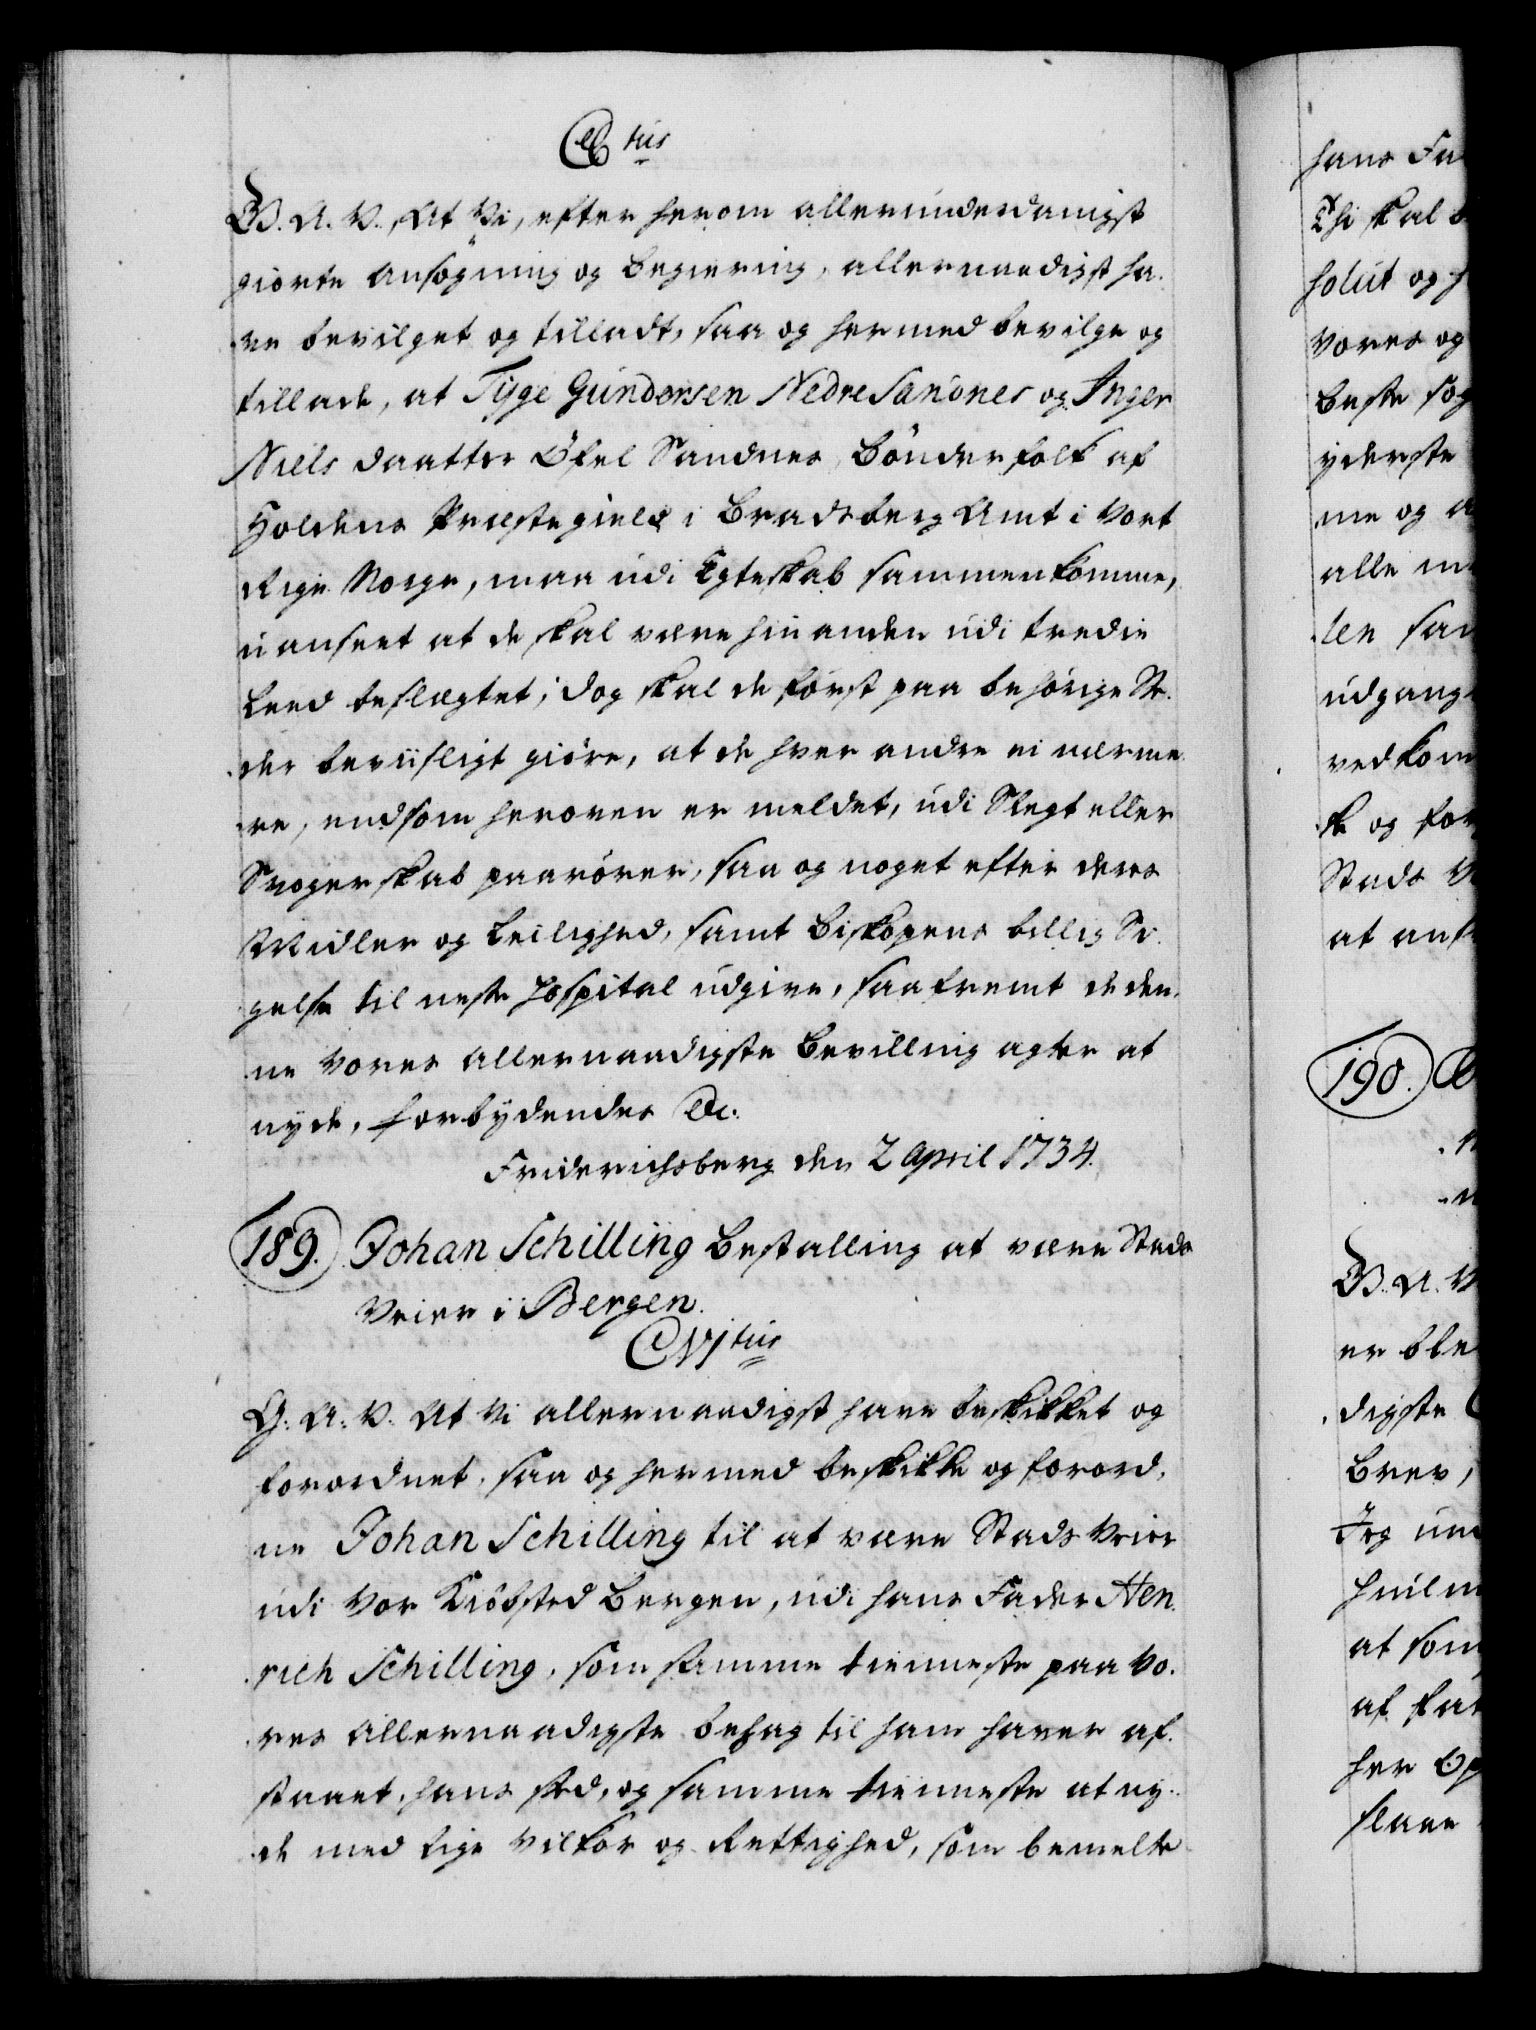 C6tus
G. A. V. At Vi, efter herom allerunderdanigst
giorte Ansøgning og Begiering, allernaadigst ha-
ve bevilget og tilladt, saa og hermed bevilge og
tillade, at Tyge Gundersen Nedre Sandnes og Inger
Niels daatter Øfel Sandnes, Bønderfolk af
Holdens Præstegield i Bradsberg Amt i Vort
Rige Norge, maa udi Egteskab sammenkomme,
uanseet at de skal være hin anden udi tredie
Leed beslægtet; dog skal de først paa behørige Ste-
der beviisligt giøre, at de hver andre ei nærme-
re, end som heroven er meldet, udi Slegt eller
Svogerskab paarører, saa og noget efter deres
Midler og Leilighed, samt Biskopens billig Si-
gelse til neste Hospital udgive, saafremt de den-
ne Vores allernaadigste Bevilling agter at
nyde, Forbydendes &c.
Friderichsberg den 2 April 1734.
189. Johan Schilling Bestalling at være Stads
Veier i Bergen.
CVItus
G. A. V. At Vi allernaadigst have beskikket og
forordnet, saa og hermed beskikke og forord-
ne Johan Schilling til at være Stads Veier
udi Vor Kiøbsted Bergen, udi hans Fader Hen-
rich Schilling, som samme tienneste paa Vo-
res allernaadigste behag til ham haver af-
staaet, hans sted, og samme tienneste at ny-
de med lige Vilkor og Rettighed, som bemelte
hans Fa
Thi skal
holdt og h
Vores og
beste søg
yderste
me og a
alle m
ten sam
udgang
vedkom
ke og for
Stads V
at ans
190.
G. A. V
er ble
digste
Brev,
Jeg un
huilm
at som
af før
her Op
slaae